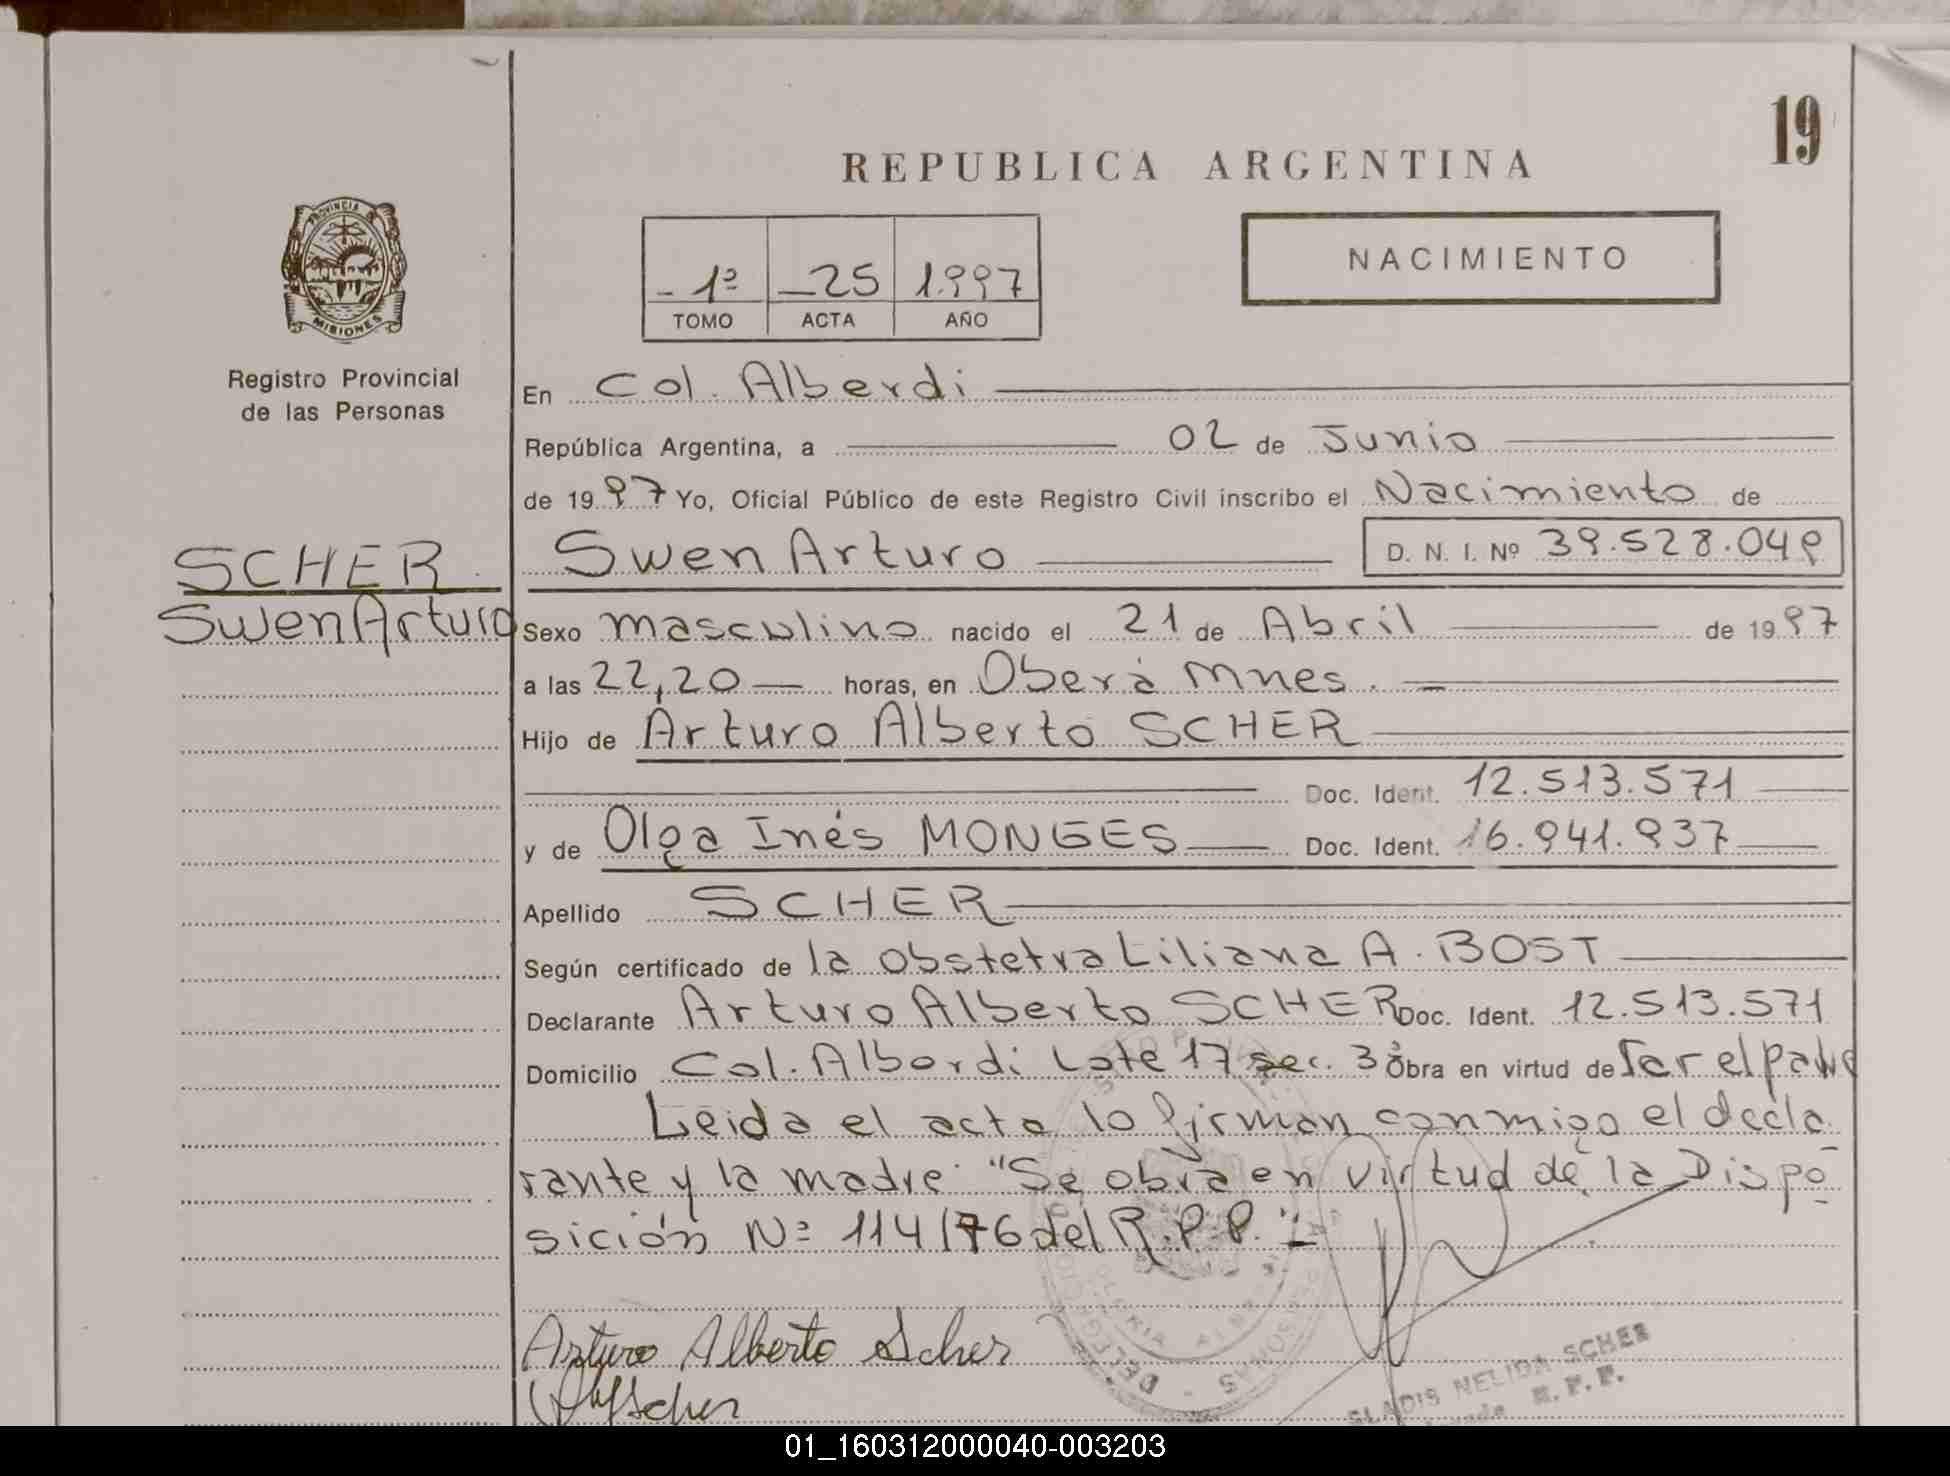 19
REPUBLICA ARGENTINA
PROVINCIA DE
MISIONES
Registro Provincial
de las Personas
- 1º - 25 1.997
TOMO ACTA AÑO
NACIMIENTO
En Col. Alberdi
República Argentina, a 02 de Junio
de 19 97 Yo, Oficial Público de este Registro Civil inscribo el Nacimiento de
Swen Arturo D. N. I. Nº 39.528.049
SCHER
Swen Arturo
Sexo masculino nacido el 21 de Abril de 19 97
a las 22,20 horas, en Oberá Mnes.
Hijo de Arturo Alberto SCHER
Doc. Ident. 12.513.571
y de Olga Inés MONGES Doc. Ident. 16.941.937
Apellido SCHER
Según certificado de la obstetra Liliana A. BOST
Declarante Arturo Alberto SCHER Doc. Ident. 12.513.571
Domicilio Col. Alberdi Lote 17 sec. 3º Obra en virtud de ser el padre
Leida el acta lo firman conmigo el decla
rante y la madre "Se obra en virtud de la Dispo
sición Nº 114/76 del R.P.P."
Arturo Alberto Scher
Scher
GLADIS NELIDA SCHER
R.P.P.
01_160312000040-003203